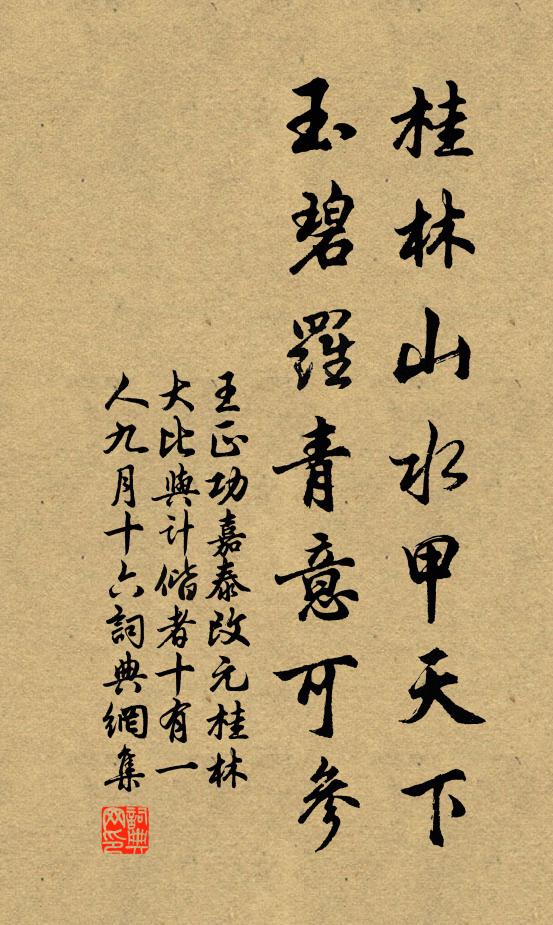 桂林山水甲天下
玉碧羅青意可參
王正功嘉泰改元桂林
大比與計偕者十有一
人九月十六詞典網集
詞典网印